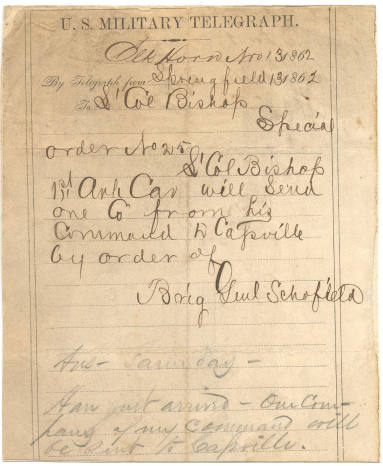 U. S. MILITARY TELEGRAPH.
Elk Horn Nov 13 1862
By Telegraph from Springfield 13 1862
To Lt Col Bishop
Special
order No 25
Lt Col Bishop
1st Ark Cav will send
one Co from his
Command to Cassville
by order of
Brig Genl Schofield
Ans - same day -
Have just arrived - One Com-
pany of my Command will
be sent to Cassville.